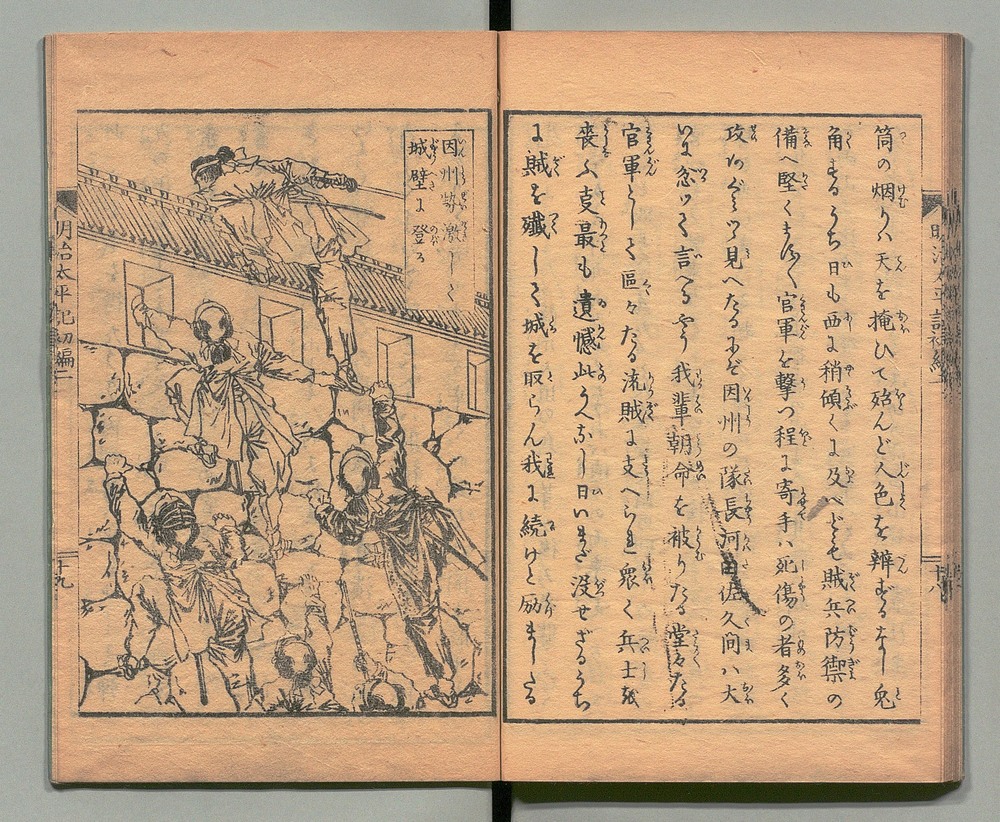 筒の烟りハ天を掩ひて殆んど人色を辨ずるなし兎
角するうち日も西に稍傾くに及べども賊兵防禦の
備へ堅くして官軍を撃つ程に寄手ハ死傷の者多く
攻めぐミて見へたるにぞ因州の隊長河田佐久間ハ大
いに忿つて言へるやう我輩朝命を被りたる堂々たる
官軍として區々たる流賊に支へられ衆く兵士を
喪ふ支最も遺憾此うへなし日いまだ没せざるうち
に賊を殲して城を取らん我に続けと励ましたる
因州勢激して
城壁に登る
明治太平記初編二
十九
十八